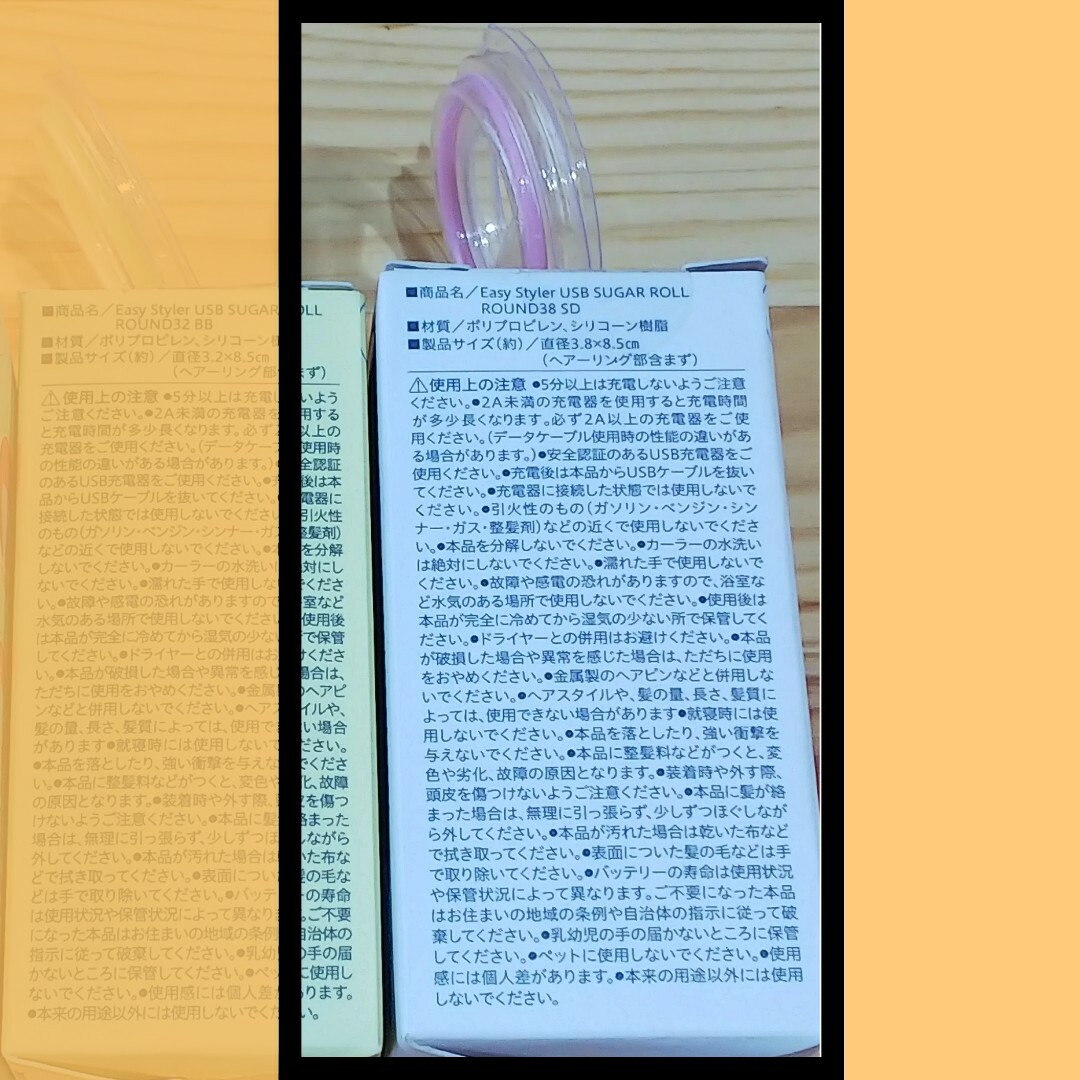 ■商品名／Easy Styler USB SUGAR ROLL
ROUND32 BB
■材質／ポリプロピレン、シリコーン
■製品サイズ(約)／直径3.2×8.5㎝
(ヘアーリング部含まず)
⚠使用上の注意 ●5分以上は充電しないよう
ご注意ください。●2A未満の充電器を使用する
と充電時間が多少長くなります。必ず2A以上の
充電器をご使用ください。(データケーブル使用時
の性能の違いがある場合があります。)●安全認証
のあるUSB充電器をご使用ください。●充電後は本
品からUSBケーブルを抜いてください。●充電器に
接続した状態では使用しないでください。●引火性
のもの(ガソリン・ベンジン・シンナー・ガス・整髪剤)
などの近くで使用しないでください。●本品を分解
しないでください。●カーラーの水洗いは絶対にし
ないでください。●濡れた手で使用しないでくださ
い。●故障や感電の恐れがありますので、浴室など
水気のある場所で使用しないでください。●使用後
は本品が完全に冷めてから湿気の少ない所で保管
してください。●ドライヤーとの併用はお避けくださ
い。●本品が破損した場合や異常を感じた場合は、
ただちに使用をおやめください。●金属製のヘアピ
ンなどと併用しないでください。●ヘアスタイルや、
髪の量、長さ、髪質によっては、使用できない場合
があります●就寝時には使用しないでください。
●本品を落としたり、強い衝撃を与えないでくださ
い。●本品に整髪料などがつくと、変色や劣化、故障
の原因となります。●装着時や外す際、頭皮を傷つ
けないようご注意ください。●本品に髪が絡まった
場合は、無理に引っ張らず、少しずつほぐしながら
外してください。●本品が汚れた場合は乾いた布な
どで拭き取ってください。●表面についた髪の毛な
どは手で取り除いてください。●バッテリーの寿命
は使用状況や保管状況によって異なります。ご不要
になった本品はお住まいの地域の条例や自治体の
指示に従って破棄してください。●乳幼児の手の届
かないところに保管してください。●ペットに使用し
ないでください。●使用感には個人差があります。
●本来の用途以外には使用しないでください。
■商品名／Easy Styler USB SUGAR ROLL
ROUND38 SD
■材質／ポリプロピレン、シリコーン樹脂
■製品サイズ(約)／直径3.8×8.5㎝
(ヘアーリング部含まず)
⚠使用上の注意 ●5分以上は充電しないようご注意
ください。●2A未満の充電器を使用すると充電時間
が多少長くなります。必ず2A以上の充電器をご使
用ください。(データケーブル使用時の性能の違いがあ
る場合があります。)●安全認証のあるUSB充電器をご
使用ください。●充電後は本品からUSBケーブルを抜い
てください。●充電器に接続した状態では使用しないで
ください。●引火性のもの(ガソリン・ベンジン・シン
ナー・ガス・整髪剤)などの近くで使用しないでくださ
い。●本品を分解しないでください。●カーラーの水洗い
は絶対にしないでください。●濡れた手で使用しないで
ください。●故障や感電の恐れがありますので、浴室な
ど水気のある場所で使用しないでください。●使用後は
本品が完全に冷めてから湿気の少ない所で保管してく
ださい。●ドライヤーとの併用はお避けください。●本品
が破損した場合や異常を感じた場合は、ただちに使用
をおやめください。●金属製のヘアピンなどと併用しな
いでください。●ヘアスタイルや、髪の量、長さ、髪質に
よっては、使用できない場合があります●就寝時には使
用しないでください。●本品を落としたり、強い衝撃を
与えないでください。●本品に整髪料などがつくと、変
色や劣化、故障の原因となります。●装着時や外す際、
頭皮を傷つけないようご注意ください。●本品に髪が絡
まった場合は、無理に引っ張らず、少しずつほぐしなが
ら外してください。●本品が汚れた場合は乾いた布など
で拭き取ってください。●表面についた髪の毛などは手
で取り除いてください。●バッテリーの寿命は使用状況
や保管状況によって異なります。ご不要になった本品
はお住まいの地域の条例や自治体の指示に従って破
棄してください。●乳幼児の手の届かないところに保管
してください。●ペットに使用しないでください。●使用
感には個人差があります。●本来の用途以外には使用
しないでください。